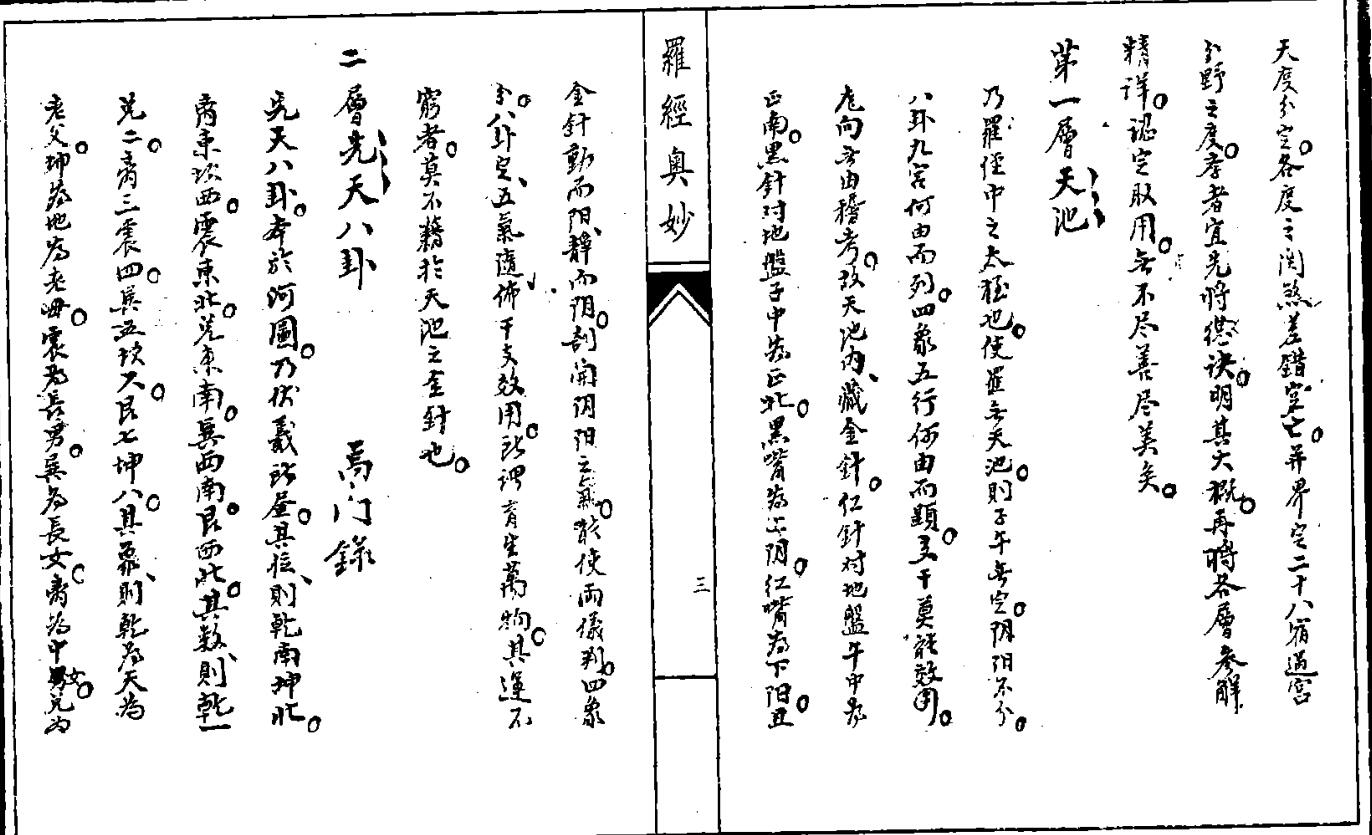 天度分定。各度之關煞差錯空亡。并界定二十八宿過宮
分野之度。學者宜先將總訣。明其大概。再將各層參解
精詳。認定取用。无不尽善尽美矣。
第一層天池
乃羅經中之太極也。使羅无天池。則子午无定。阴阳不分。
八卦九宮何由而列。四象五行何由而顯。支干莫能效用。
定向无由稽考。故天池內、藏金針。红針对地盤午中為
正南。黑針对地盤子中為正北。黑嘴為上阴。红嘴為下阳。且
羅經奧妙
三
金針動而阳、靜而阴。剖開阴阳之氣。能使兩儀判。四象
分。八卦定、五氣遠佈、干支效用。所謂育生萬物。其運不
窮者。莫不藉於天池之金針也。
二層先天八卦 焉门錄
先天八卦。本於河圖。乃伏羲所畫。其位、則乾南坤北。
离東坎西。震東北。兌東南。巽西南。艮西北。其数、則乾一
兌二。离三震四。巽五坎六。艮七坤八。其象、則乾為天為
老父。坤為地為老母。震為長男。巽為長女。离為中女。兌为